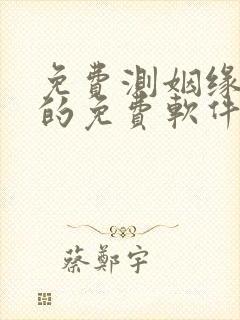 免費測姻緣
的免費軟件
蔡鄭宇